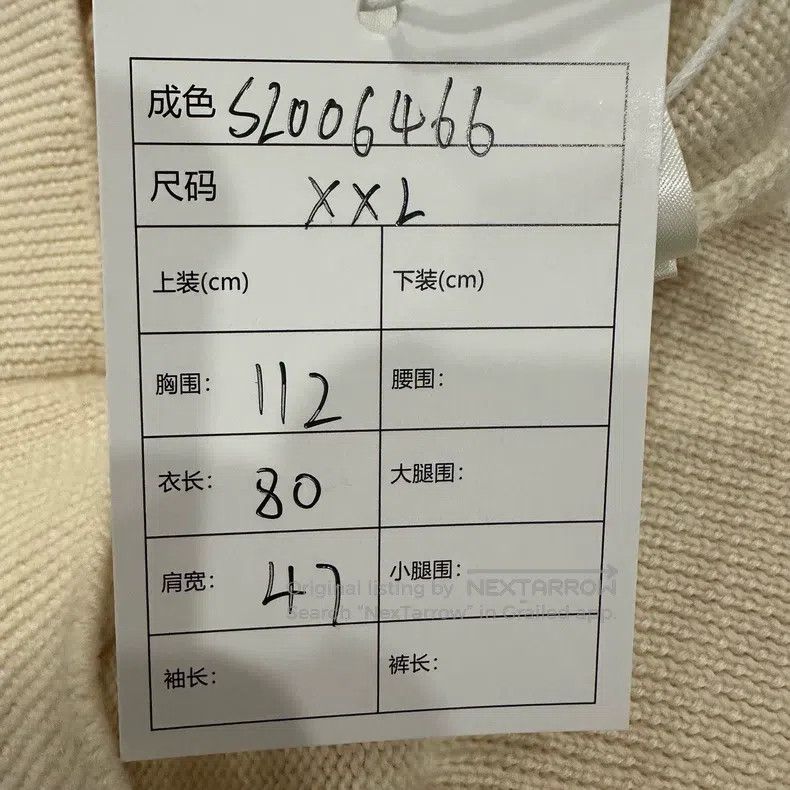 成色 S2006466
尺码 XXL
上装(cm) 下装(cm)
胸围: 112 腰围:
衣长: 80 大腿围:
肩宽: 47 小腿围:
Original listing by NEXTARROW
Search "NexTarrow" in Grailed app.
袖长: 裤长: